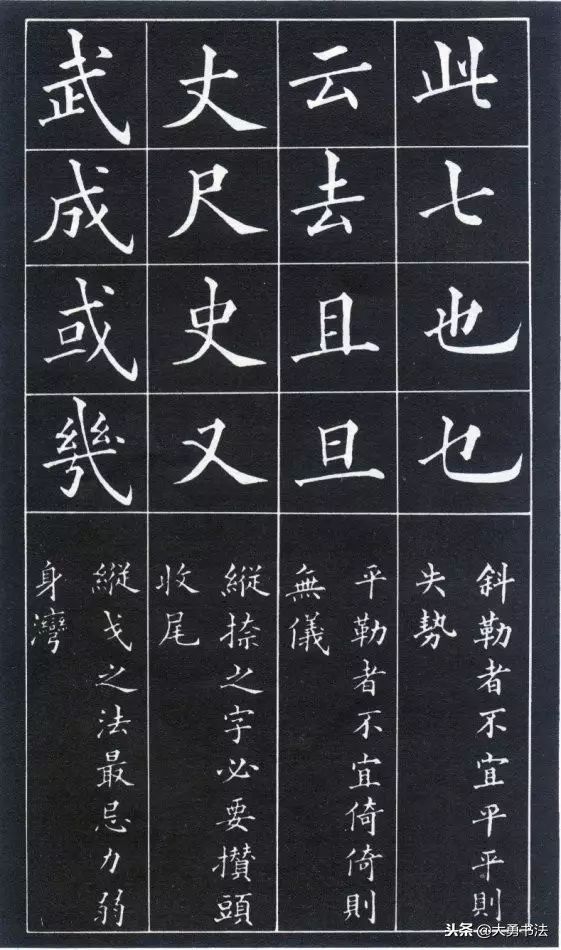 此七也乜
斜勒者不宜平平則
失勢
云去且旦
平勒者不宜倚倚則
無儀
丈尺史又
縱捺之字必要攢頭
收尾
武成或幾
縱戈之法最忌力弱
身灣
头条 @夫勇书法